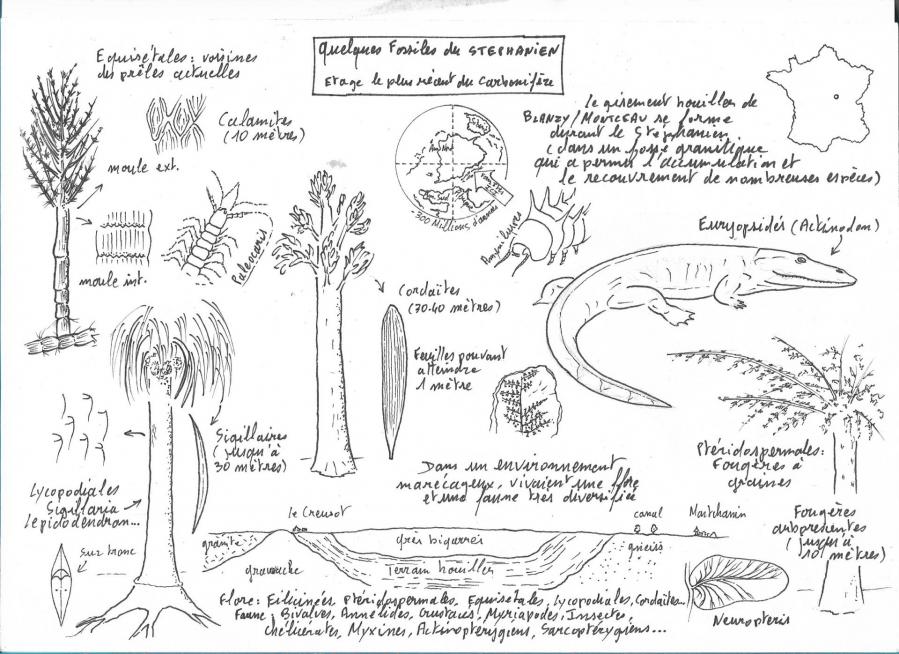 Quelques Fossiles du STEPHANIEN
Etage le plus récent du Carbonifère
Equisétales : voisines
des prêles actuelles
Calamites
(10 mètres)
moule ext.
moule int.
Paleocaris
300 Millions d'années
Le gisement houiller de
BLANZY/MONTCEAU se forme
durant le Stephanien
(dans un fossé granitique
qui a permis l'accumulation et
le recouvrement de nombreuses espèces)
Euryopsidés (Actinodon)
Cordaïtes
(30-40 mètres)
Feuilles pouvant
atteindre
1 mètre
Sigillaires
(jusqu'à
30 mètres)
Lycopodiales
Sigillaria
Lepidodendron...
sur tronc
Ptéridospermales :
Fougères à
graines
Fougères
arborescentes
(jusqu'à
10 mètres)
Dans un environnement
marécageux, vivaient une flore
et une faune très diversifiée
le Creusot
canal
granite
grès bigarrés
gneiss
grauwacke
Terrain houiller
Neuropteris
Flore : Filicinées Ptéridospermales, Equisetales, Lycopodiales, Cordaïtes...
Faune : Bivalves, Annélides, Crustacés, Myriapodes, Insectes,
Chélicérates, Myxines, Actinoptérygiens, Sarcoptérygiens...